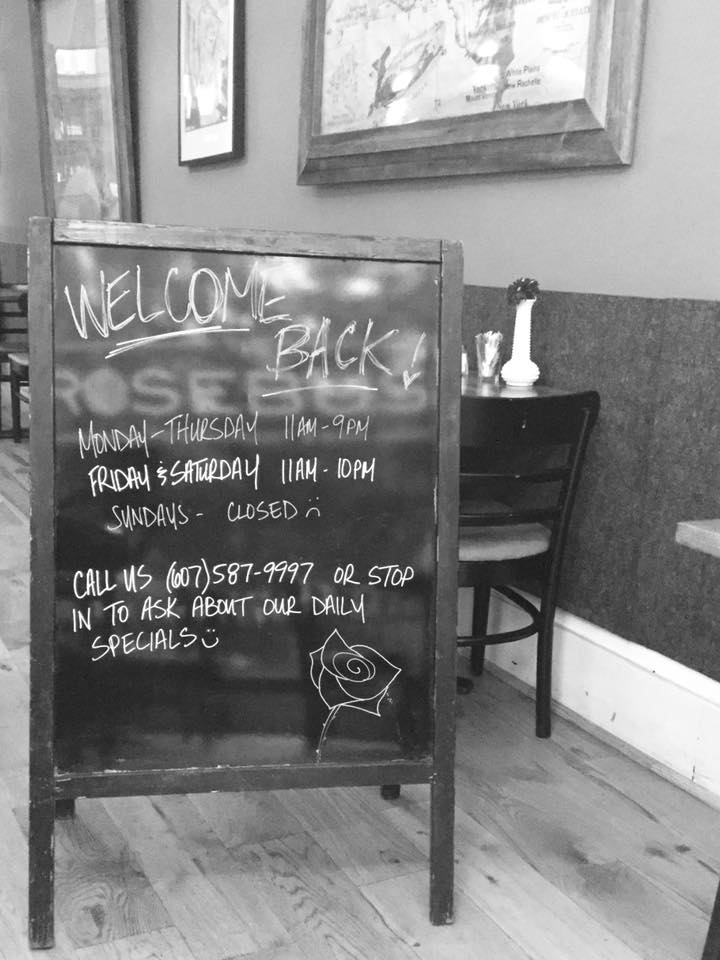 White Plains
New Rochelle
New York
WELCOME
BACK!
ROSEBUDS
MONDAY-THURSDAY 11AM-9PM
FRIDAY & SATURDAY 11AM-10PM
SUNDAYS- CLOSED :(
CALL US (607)587-9997 OR STOP
IN TO ASK ABOUT OUR DAILY
SPECIALS :)